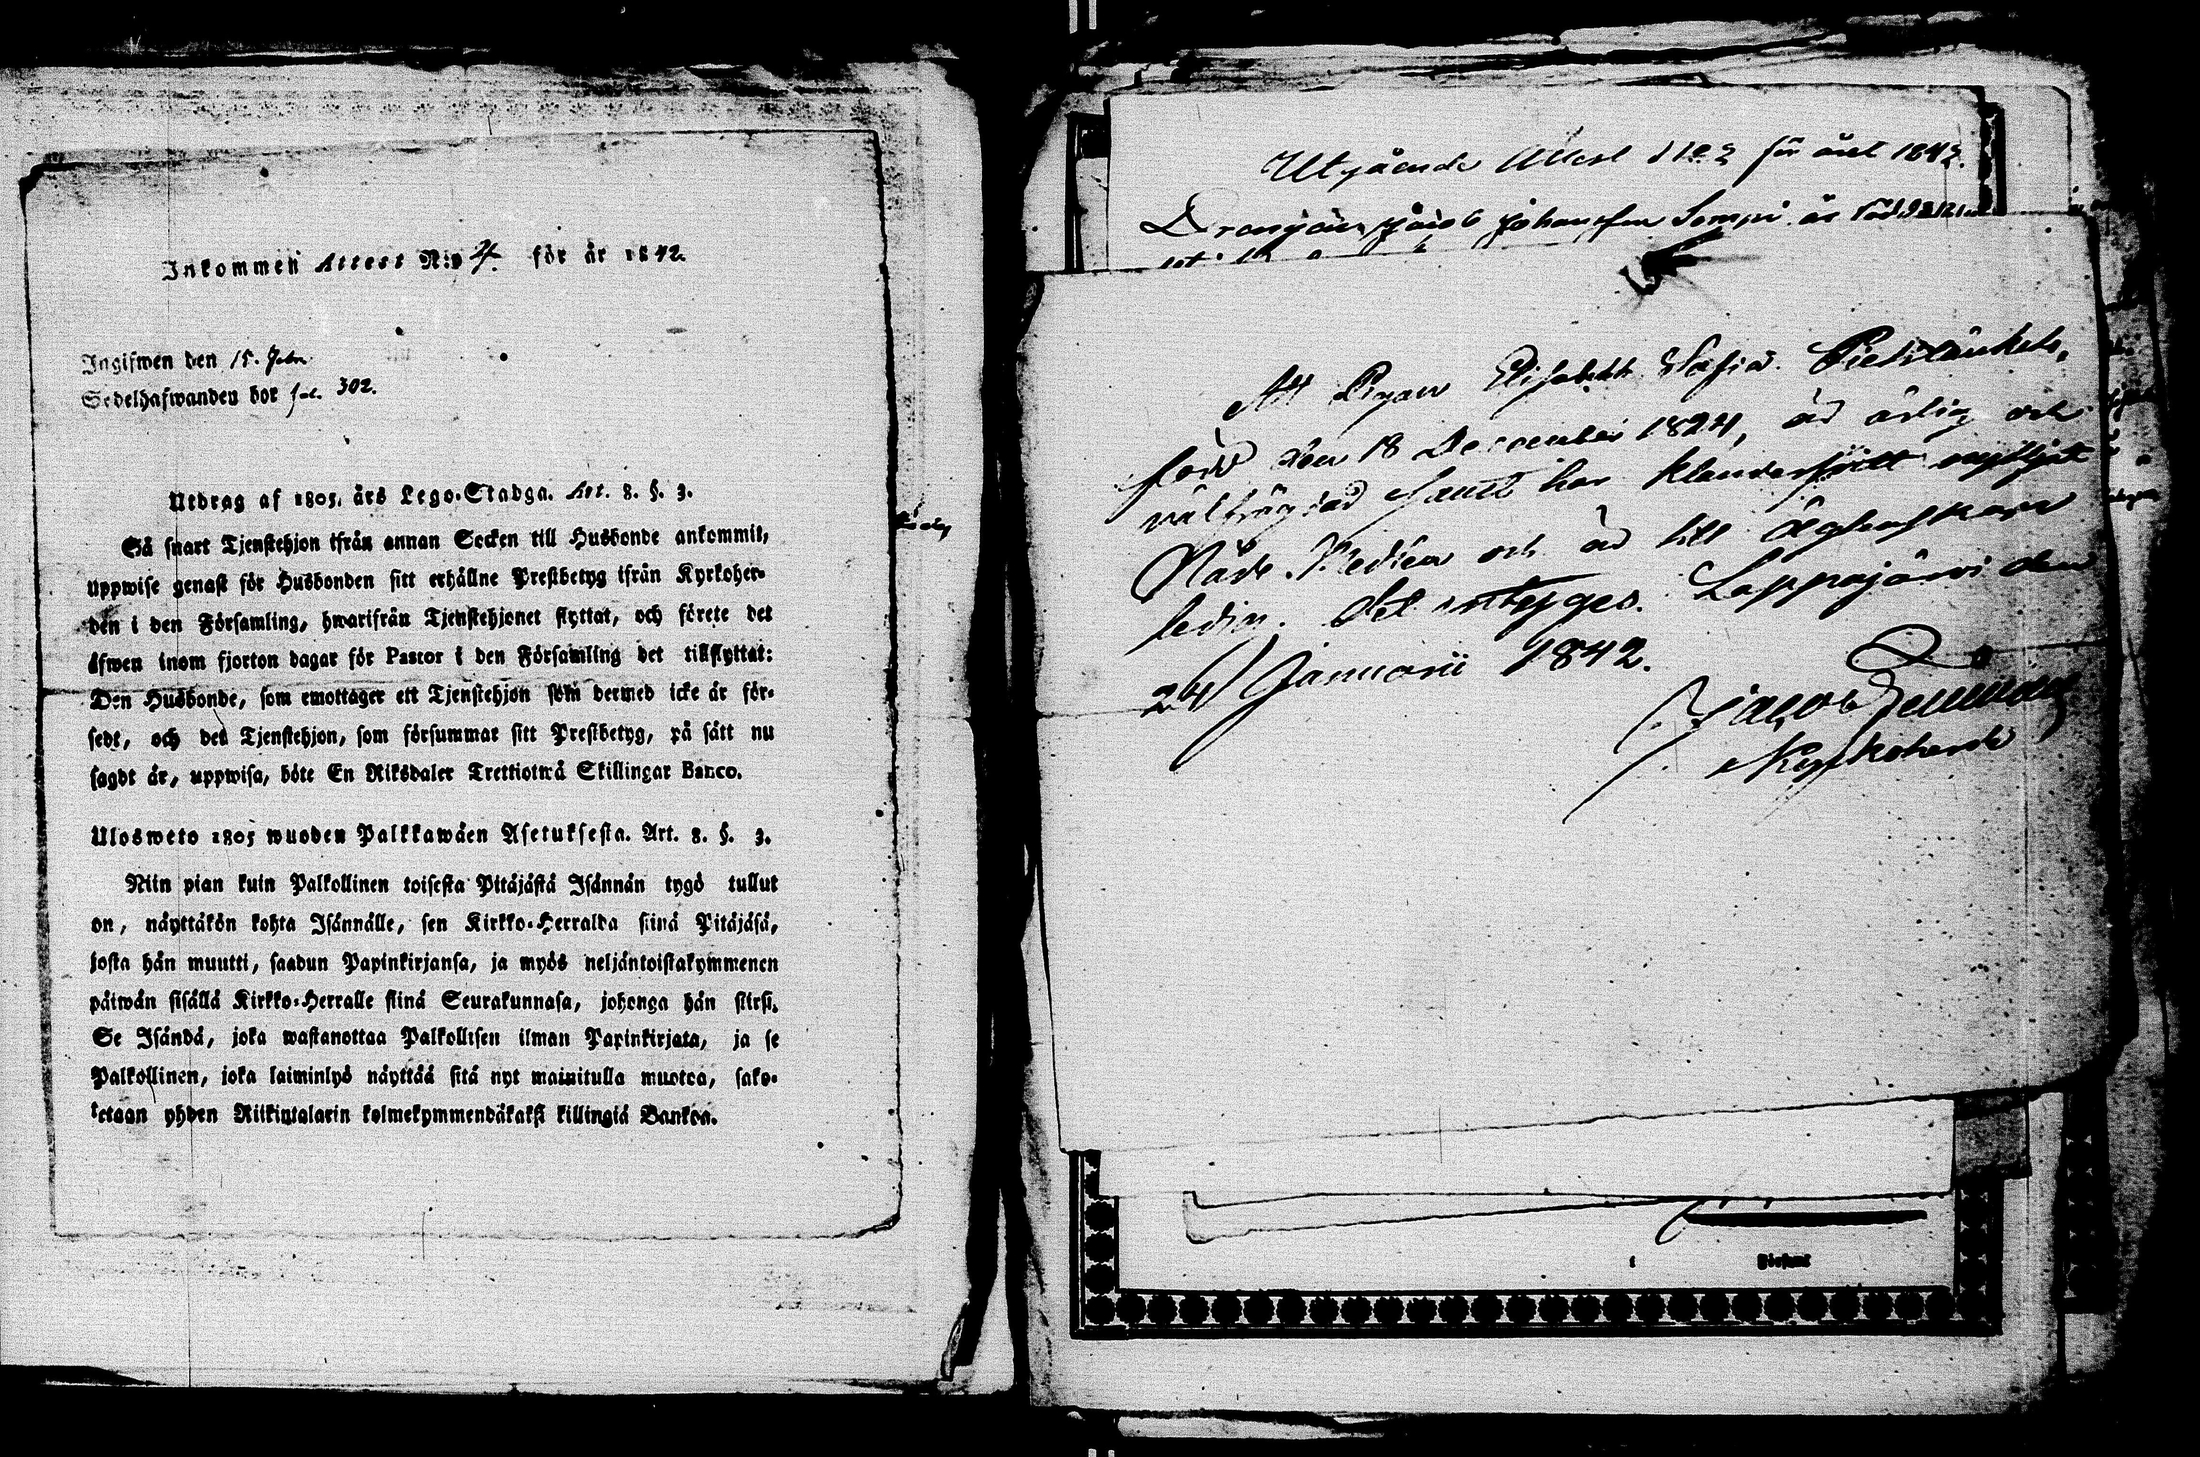 Inkommen Attest N:o 4. för år 1842.
Ingifwen den 15. Febr.
Sedelhafwanden bor fol. 302.
Utdrag af 1805. års Lego-Stadga. Art. 8. §. 3.
Så snart Tjenstehjon ifrån annan Socken till Husbonde ankommit,
uppwise genast för Husbonden sitt erhållne Prestbetyg ifrån Kyrkoher-
den i den Församling, hwarifrån Tjenstehjonet flyttat, och förete det
äfwen inom fjorton dagar för Pastor i den Församling det tillflyttat:
Den Husbonde, som emottager ett Tjenstehjon som dermed icke är för-
sedt, och det Tjenstehjon, som försummar sitt Prestbetyg, på sätt nu
sagdt är, uppwisa, böte En Riksdaler Trettiotwå Skillingar Banco.
Ulosweto 1805 wuoden Palkkawäen Asetuksesta. Art. 8. §. 3.
Niin pian kuin Palkollinen toisesta Pitäjästä Isännän tygö tullut
on, näyttäkön kohta Isännälle, sen Kirkko-Herralda siinä Pitäjäsä,
josta hän muutti, saadun Papinkirjansa, ja myös neljäntoistakymmenen
päiwän sisällä Kirkko-Herralle siinä Seurakunnasa, johonga hän siirsi.
Se Isändä, joka wastanottaa Palkollisen ilman Papinkirjata, ja se
Palkollinen, joka laiminlyö näyttää sitä nyt mainitulla muotoa, sako-
tetaan yhden Riikintalarin kolmekymmendäkaksi killingiä Bankoa.
Utgående Attest för året 1842.
Drängen Jacob Johansson Sompi är född
Att Pigan Elisabeth Sofia
född den 18 December 1824, är ärlig och
välfrägdad samt har klanderfritt nyttjat
Nåde Medlen och är till Ägtenskap
ledig. Det intygas. Lappajärvi den
24 Januarii 1842.
Jacob
Kyrkoherde
Församl